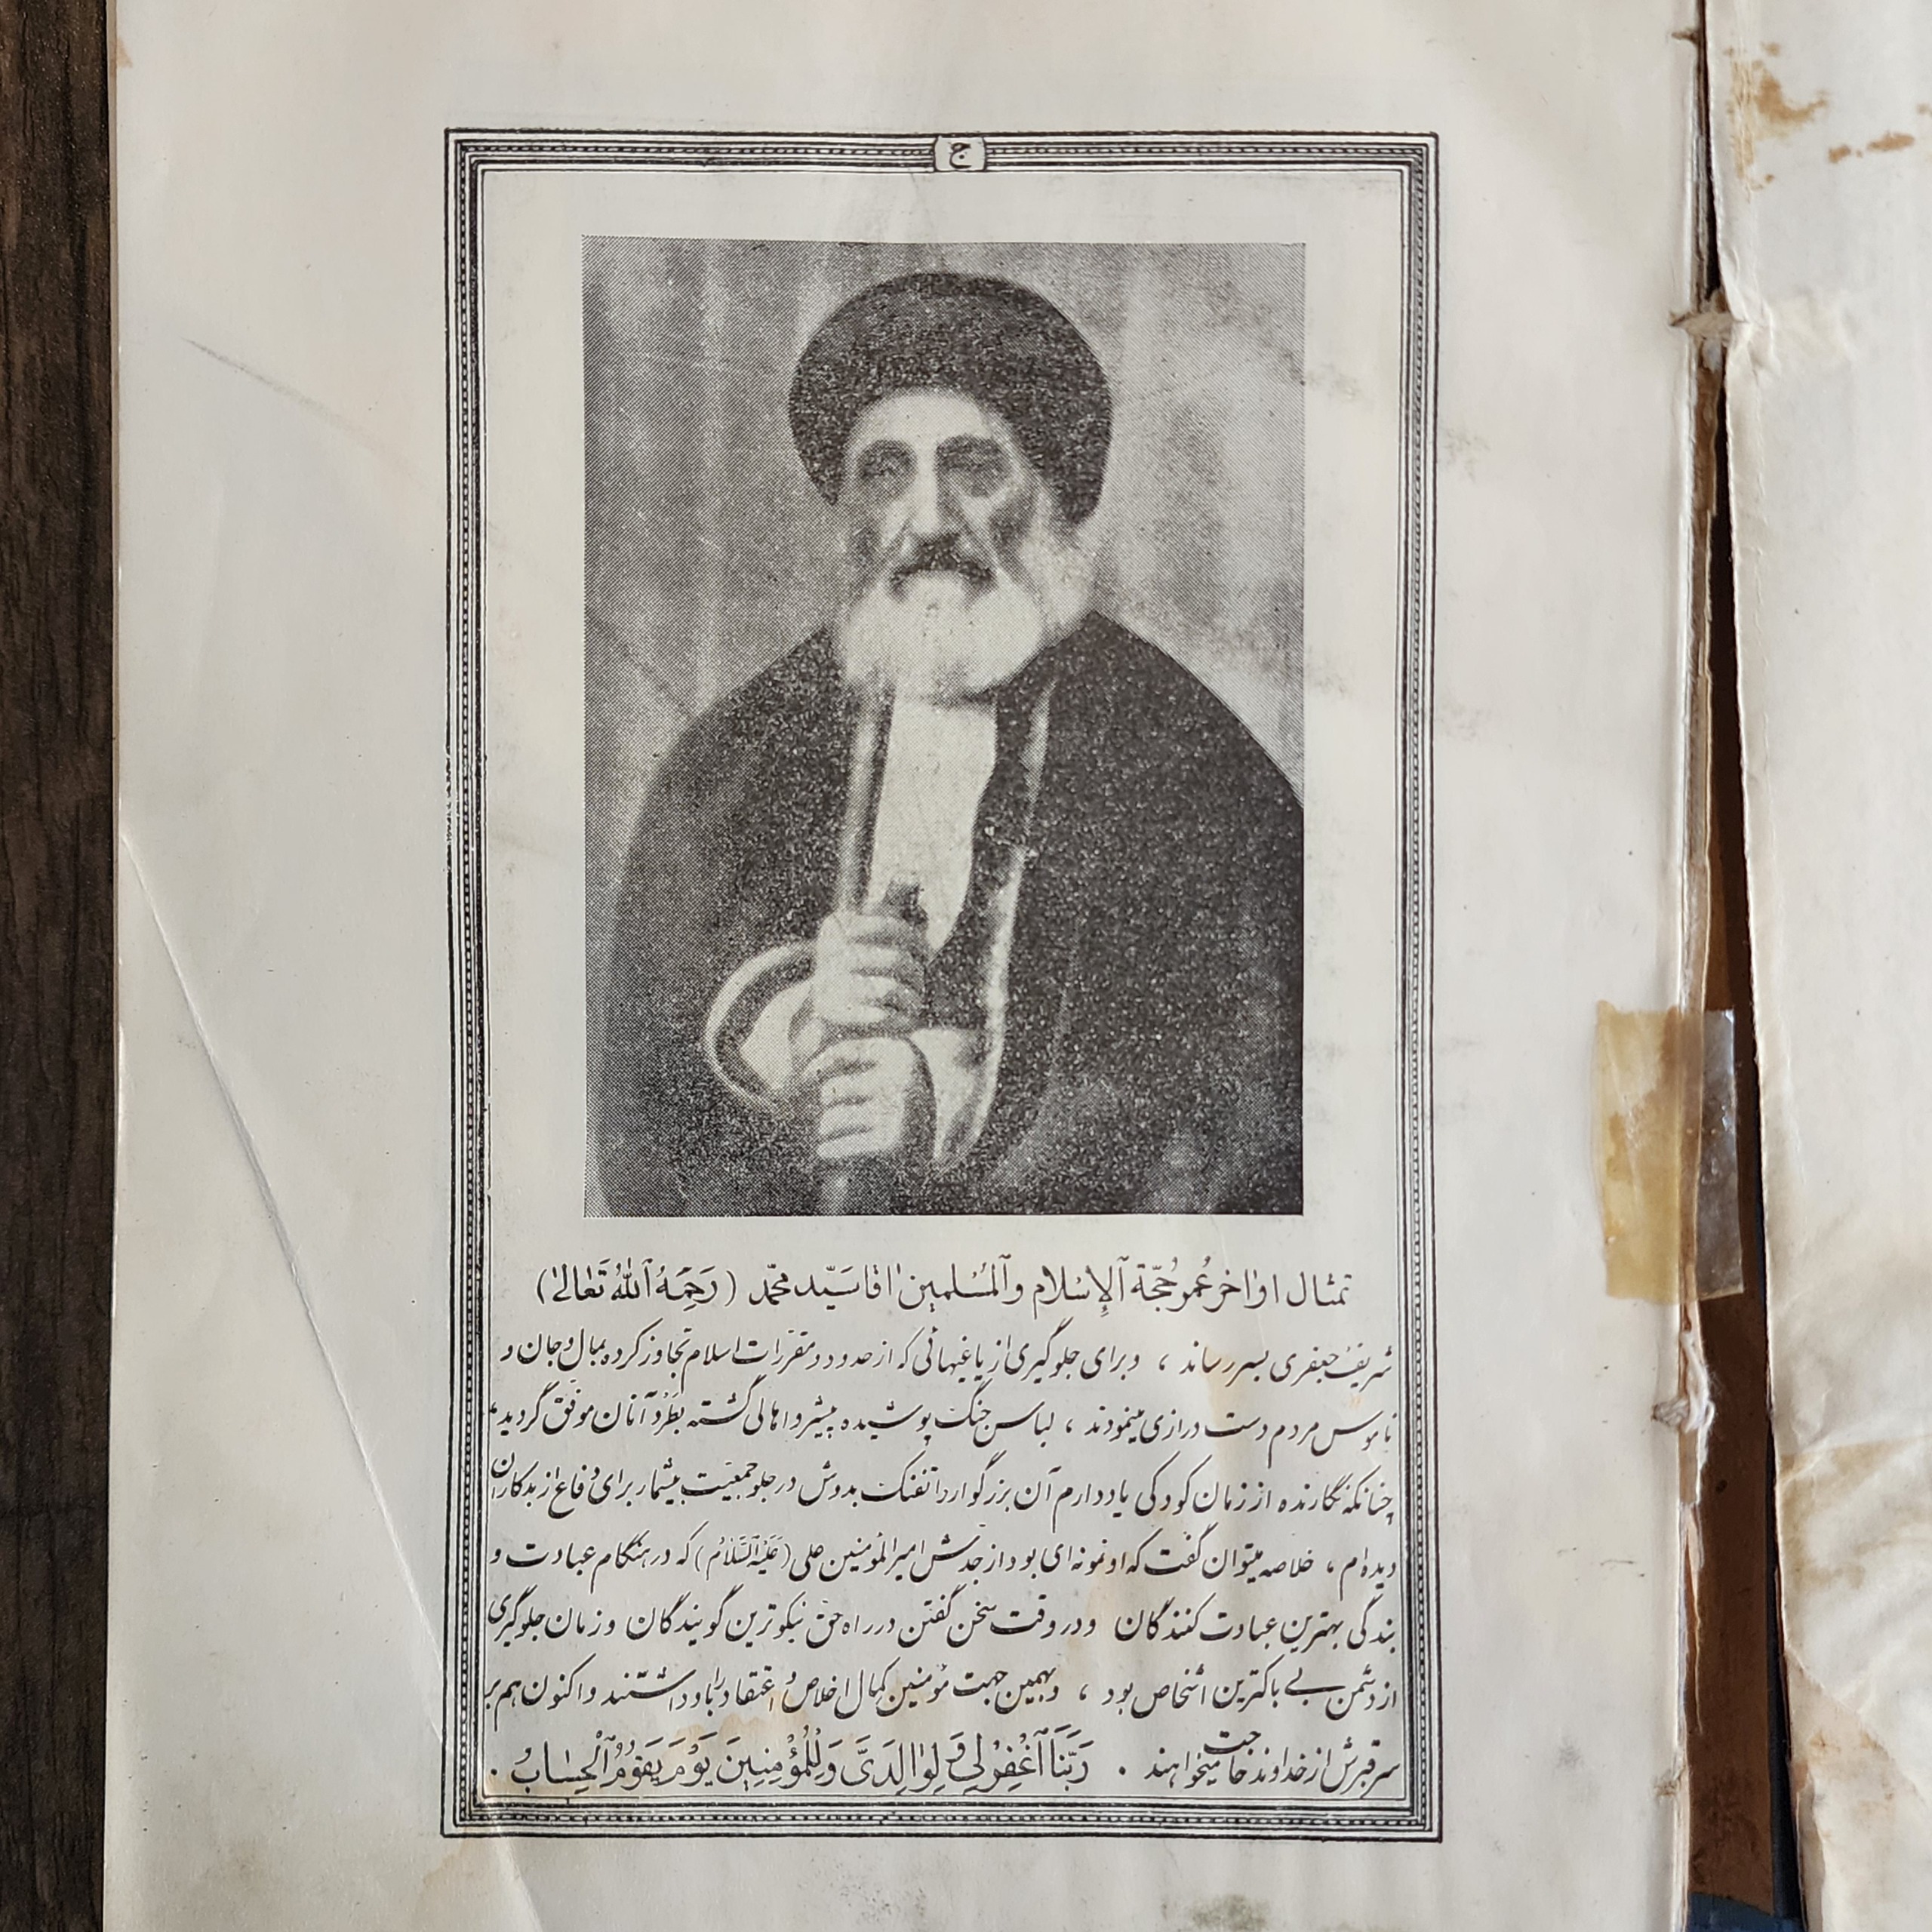 ج
تمثال اواخر عمر حُجّة ٱلاِسْلام وٱلمُسْلمین اقا سَیّد محمّد (رَحِمَهُ ٱللّٰهُ تَعٰالیٰ)
شریف جعفری بسر رساند ، و برای جلوگیری از یاغیهائی که از حدود و مقررات اسلام تجاوز کرده بمال و جان و
ناموس مردم دست درازی مینمودند ، لباس جنگ پوشیده پیشرو اهالی گشته بطَرْد آنان موفق گردید،
چنانکه نگارنده از زمان کودکی یاد دارم آن بزرگوار را تفنگ بدوش در جلو جمعیت بیشمار برای دفاع از بدکاران
دیده‌ام ، خلاصه میتوان گفت که او نمونه‌ای بود از جدش امیرالمؤمنین علی (عَلَیْهِ ٱلسَّلامُ) که در هنگام عبادت و
بندگی بهترین عبادت کنندگان و در وقت سخن گفتن در راه حق نیکوترین گویندگان و زمان جلوگیری
از دشمن بی باکترین اشخاص بود ، و بهمین جهت مؤمنین کمال اخلاص و اعتقاد را باو داشتند و اکنون هم بر
سر قبرش از خداوند حاجت میخواهند . رَبَّنَا ٱغْفِرْ لِی وَ لِوٰالِدَیَّ وَ لِلْمُؤْمِنِینَ یَوْمَ یَقُومُ ٱلْحِسٰابُ .